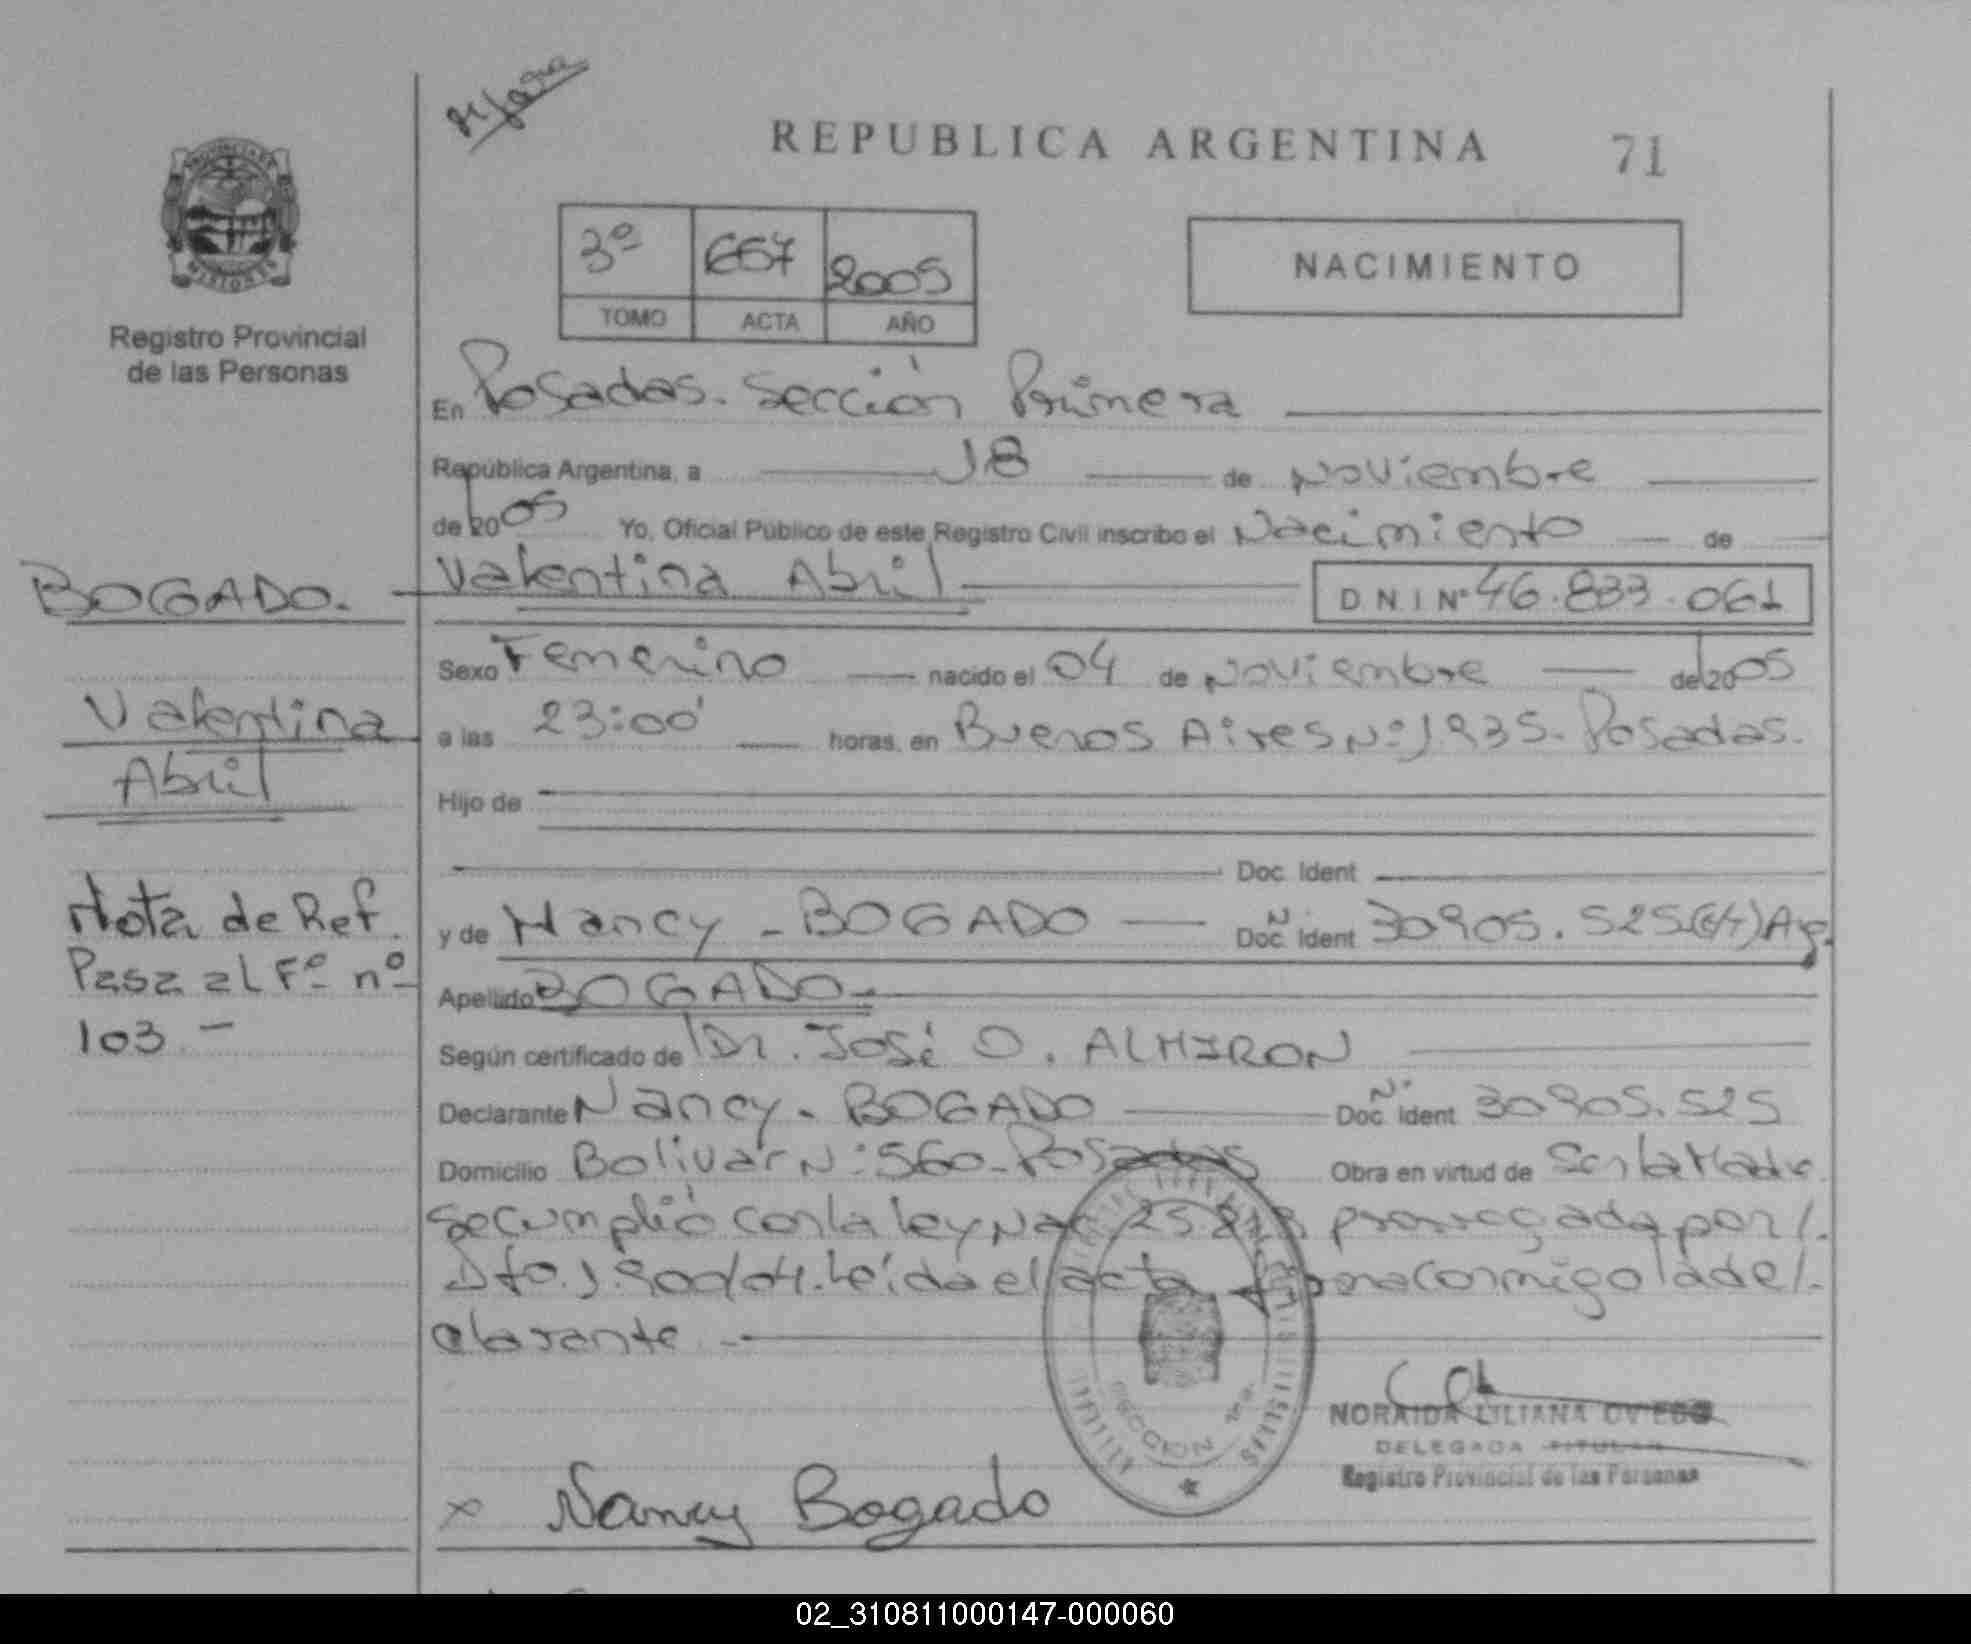 REPUBLICA ARGENTINA 71
3º 657 2005
TOMO ACTA AÑO
NACIMIENTO
PROVINCIA DE
MISIONES
Registro Provincial
de las Personas
En Posadas. Sección Primera
República Argentina, a 18 de Noviembre
de 2005 Yo, Oficial Público de este Registro Civil inscribo el Nacimiento de
BOGADO. Valentina Abril DNI Nº 46.833.061
Sexo Femenino nacido el 04 de Noviembre de 2005
Valentina
Abril
a las 23:00' horas, en Buenos Aires Nº 1935. Posadas.
Hijo de
Doc. Ident
Nota de Ref.
Pasa al Fº nº
103 -
y de Nancy - BOGADO Doc. Ident N 30905.525 Arg.
Apellido BOGADO.-
Según certificado de Dr. José O. ALMIRON
Declarante Nancy - BOGADO Doc. Ident Nº 30905.525
Domicilio Bolivar Nº 560 - Posadas Obra en virtud de Ser la Madre.
Se cumplió con la ley Nac 25.819 prorrogada por /.
Dto. 1.900/04. Leída el acta firma conmigo la de/-
clarante.-
SECCION 1ra.
NORAIDA LILIANA OVIEDO
DELEGADA TITULAR
Registro Provincial de las Personas
x Nancy Bogado
02_310811000147-000060